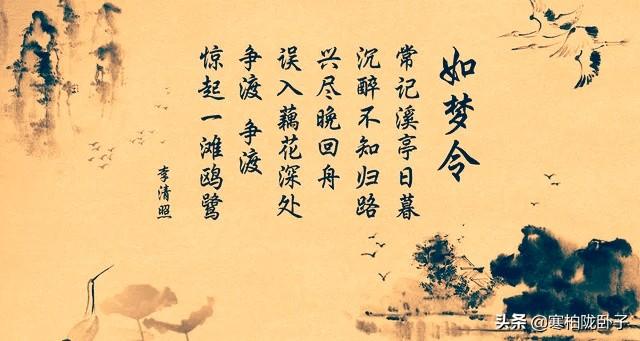 如梦令
常记溪亭日暮
沉醉不知归路
兴尽晚回舟
误入藕花深处
争渡 争渡
惊起一滩鸥鹭
李清照
头条 @寒柏陇卧子